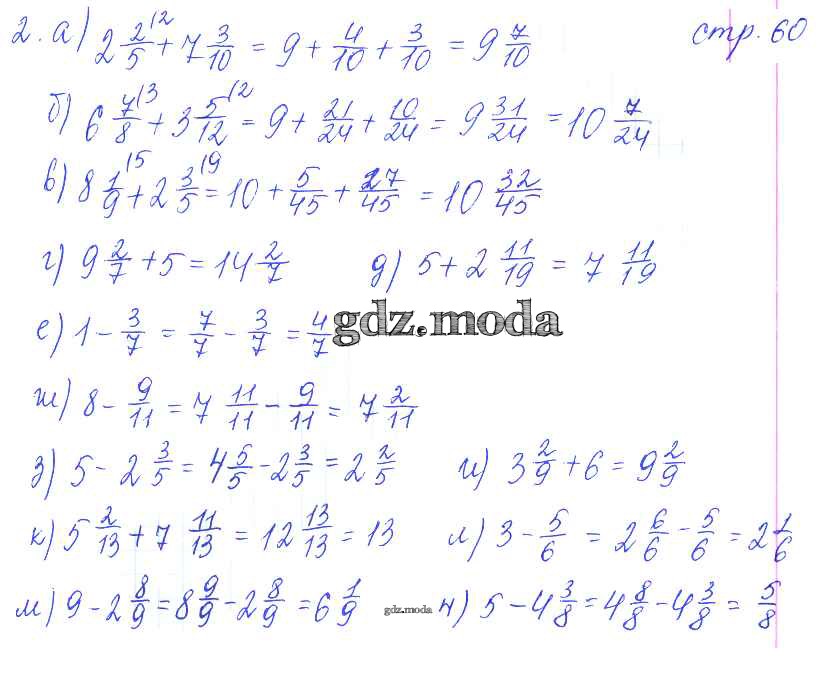 2. а) 2 2/5 (2 + 7 3/10 = 9 + 4/10 + 3/10 = 9 7/10 стр. 60
б) 6 7/8 (3 + 3 5/12 (2 = 9 + 21/24 + 10/24 = 9 31/24 = 10 7/24
в) 8 1/9 (5 + 2 3/5 (9 = 10 + 5/45 + 27/45 = 10 32/45
г) 9 2/7 + 5 = 14 2/7 д) 5 + 2 11/19 = 7 11/19
е) 1 - 3/7 = 7/7 - 3/7 = 4/7 gdz.moda
ж) 8 - 9/11 = 7 11/11 - 9/11 = 7 2/11
з) 5 - 2 3/5 = 4 5/5 - 2 3/5 = 2 2/5 и) 3 2/9 + 6 = 9 2/9
к) 5 2/13 + 7 11/13 = 12 13/13 = 13 л) 3 - 5/6 = 2 6/6 - 5/6 = 2 1/6
м) 9 - 2 8/9 = 8 9/9 - 2 8/9 = 6 1/9 gdz.moda н) 5 - 4 3/8 = 4 8/8 - 4 3/8 = 5/8